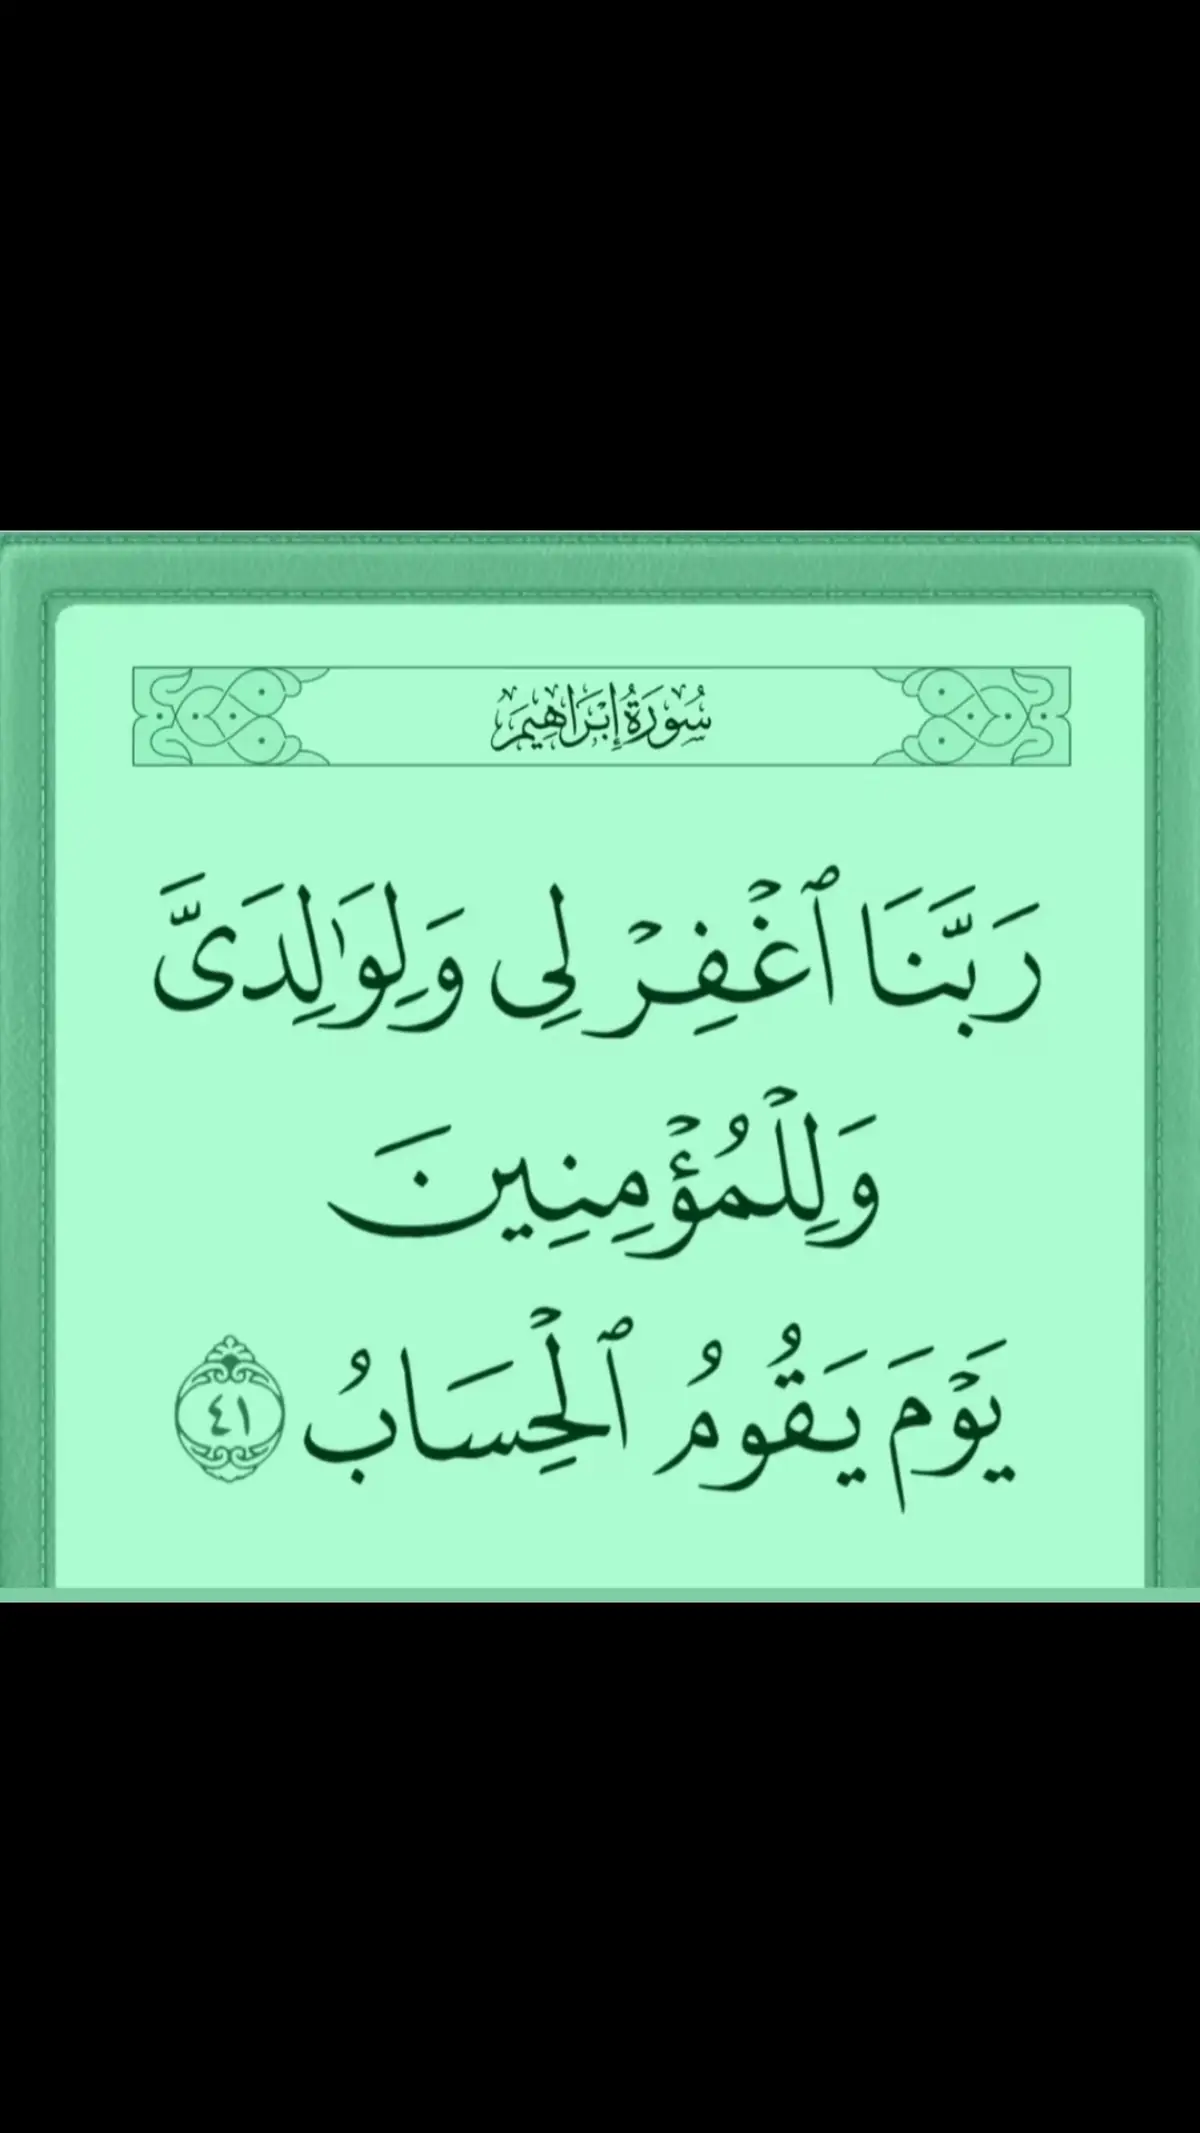 سُورَةُ إِبۡرَاهِيمَ
رَبَّنَا ٱغۡفِرۡ لِي وَلِوَٰلِدَيَّ
وَلِلۡمُؤۡمِنِينَ
يَوۡمَ يَقُومُ ٱلۡحِسَابُ ٤١